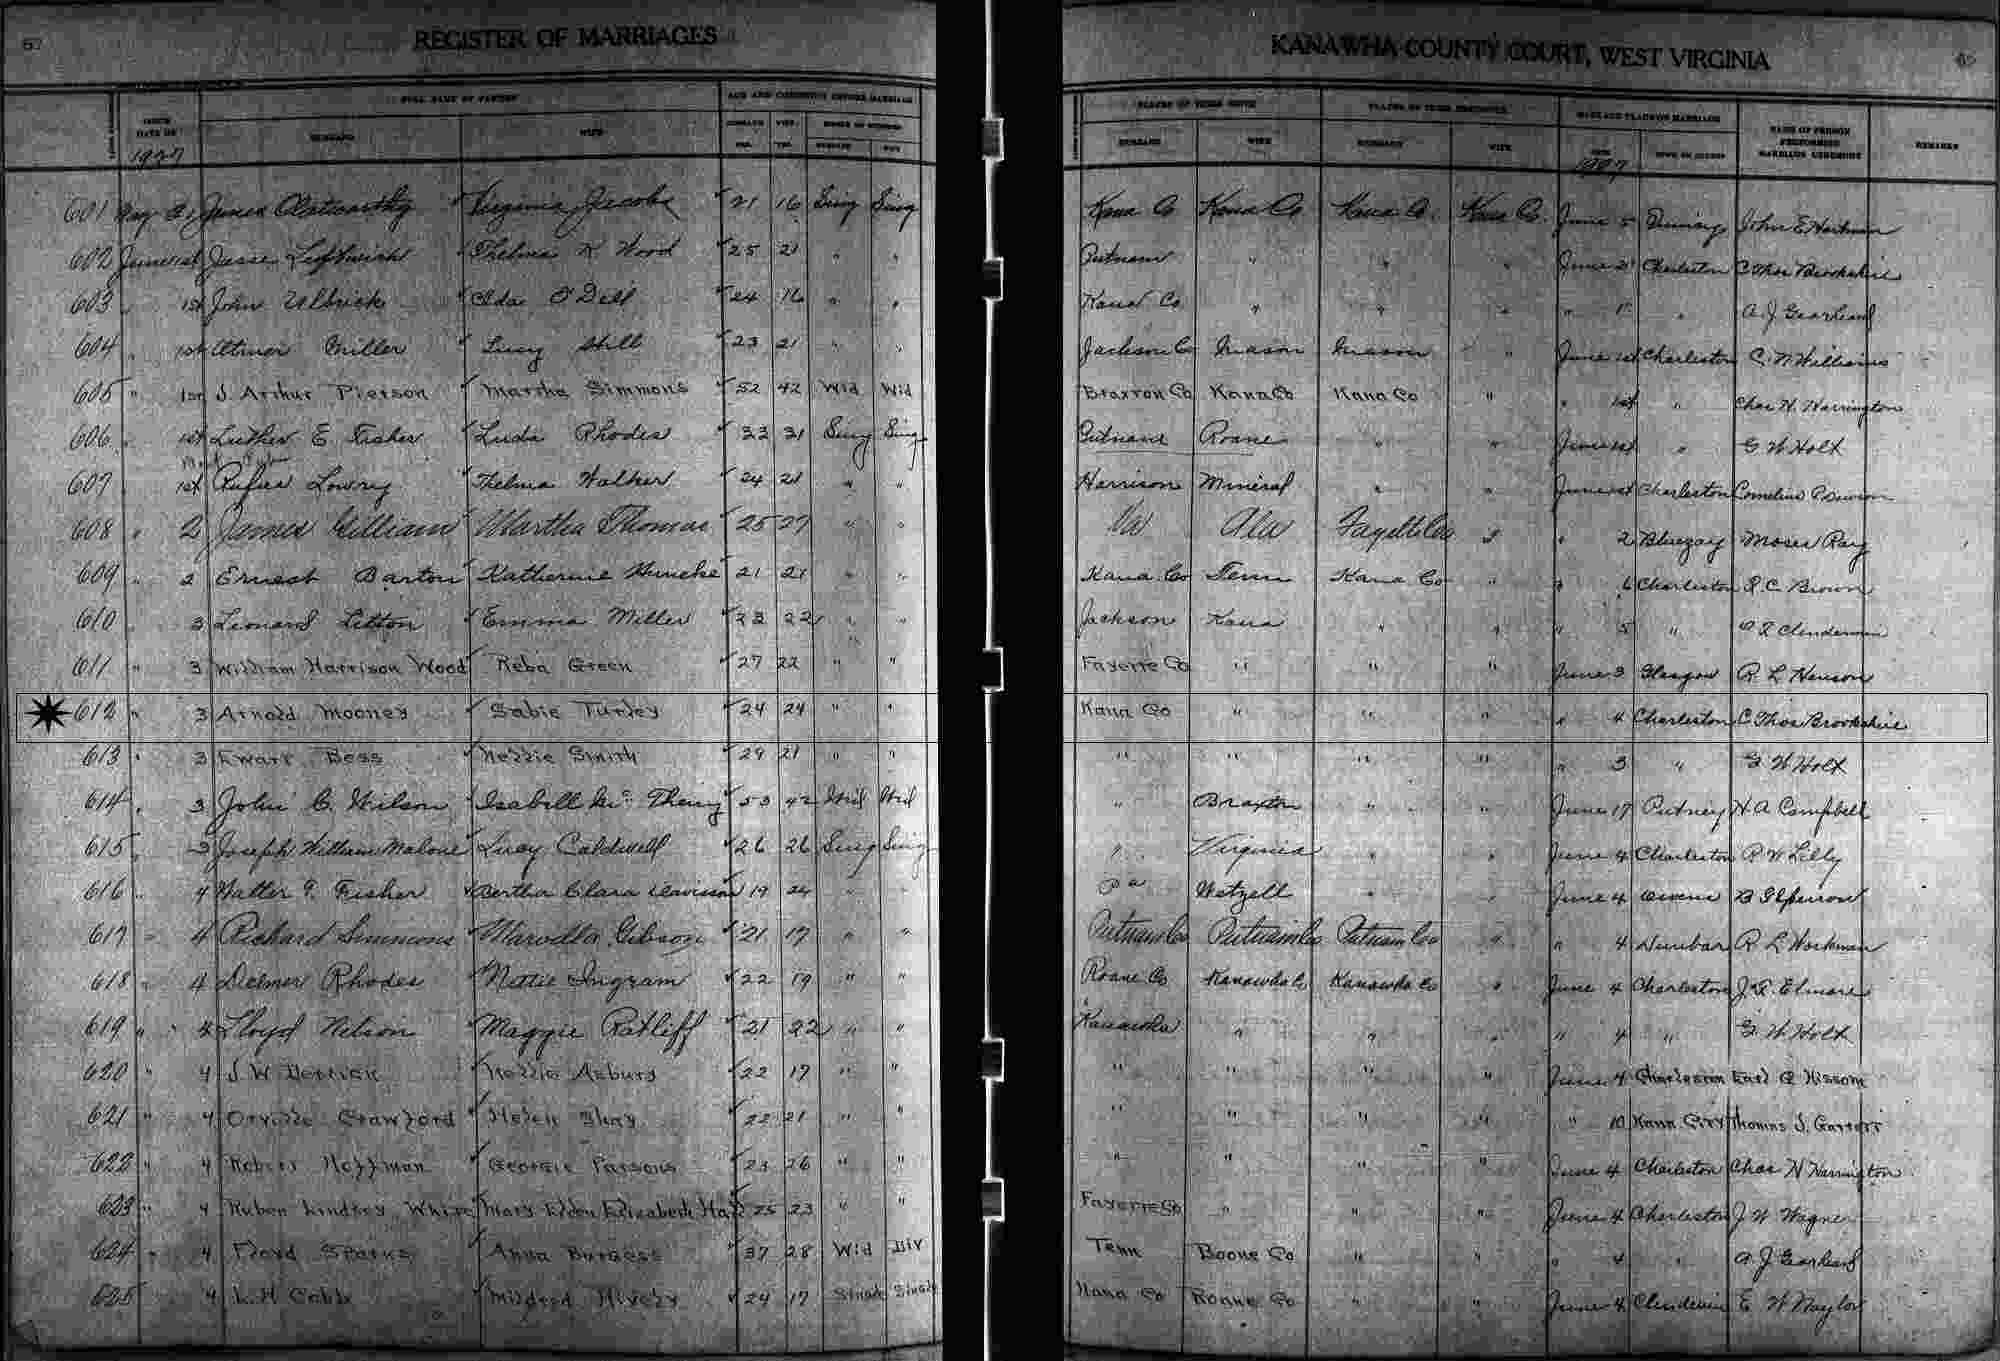 67 REGISTER OF MARRIAGES KANAWHA COUNTY COURT, WEST VIRGINIA
FULL NAME OF PARTIES AGE AND CONDITION BEFORE MARRIAGE PLACES OF THEIR BIRTH PLACES OF THEIR RESIDENCE DATE AND PLACE OF MARRIAGE NAME OF PERSON PERFORMING MARRIAGE CEREMONY REMARKS
DATE OF HUSBAND WIFE HUSBAND WIFE HUSBAND WIFE HUSBAND WIFE
1927 YRS. YRS. 1927
601 May 31 James Virginia Jacobs 21 16 Sing Sing Kana Co Kana Co Kana Co. Kana Co. June 5 John E Hartman
602 June 1st Jesse Leftwich Thelma K Wood 25 21 " " Putnam " " " June 2 Charleston C Thos Brookshire
603 " 1st John Ulbrick Ida O'Dell 24 16 " " Kana Co " " " " 1st " A. J Gearheard
604 " 1st Miller Lucy Hill 23 21 " " Jackson Co Mason Mason " June 1st Charleston C. N Williams
605 " 1st J. Arthur Pierson Martha Simmons 52 42 Wid Wid Braxton Co Kana Co Kana Co " " 1st " Chas N. Harrington
606 " 1st Luther E Fisher Luda Rhodes 31 Sing Sing Putnam Roane " " June 1st " G W Holt
607 " 1st Rufus Lowry Thelma Walker 24 21 " " Harrison Mineral " " June 1st Charleston Cornelius
608 " 2 James Gilliam Martha Thomas 25 27 " " Va Ala Fayette Co " " 2 Moses Ray
609 " 2 Ernest Barton Katherine Huncke 21 21 " " Kana Co Tenn Kana Co " " 6 Charleston R. C. Brown
610 3 Leonard Litton Emma Miller 23 22 " " Jackson Kana " " " 5 " Clendennin
611 " 3 William Harrison Wood Reba Green 27 22 " " Fayette Co " " " June 3 Glasgow R. L Henson
612 " 3 Arnold Mooney Sabie Turley 24 24 " " Kana Co " " " " 4 Charleston C. Thos Brookshire
613 " 3 Ewart Bess Nellie Smith 29 21 " " " " " " " 3 " G. W Holt
614 " 3 John C. Wilson Isabell Mc 53 42 Wid Wid " Braxton " " June 17 Putney H. A Campbell
615 " 3 Joseph William Malone Lucy Caldwell 26 26 Sing Sing " Virginia " " June 4 Charleston R. W Lilly
616 " 4 Walter Fisher Bertha Clara Davisson 19 24 " " Pa Wetzell " " June 4 Owens
617 " 4 Richard Simmons Marvella Gibson 21 17 " " Putnam Co Putnam Co Putnam Co " " 4 Dunbar R. L Workman
618 " 4 Delmer Rhodes Mattie Ingram 22 19 " " Roane Co Kanawha Co Kanawha Co " June 4 Charleston J. R. Elmore
619 " 4 Lloyd Nelson Maggie Ratliff 21 22 " " Kanawha " " " " 4 " G. W Holt
620 " 4 J. W Derrick Nellie Asbury 22 17 " " " " " " June 4 Charleston Earl C Hissom
621 " 4 Orville Crawford Helen Shay 22 21 " " " " " " " 10 Kana City Thomas J. Garrett
622 " 4 Robert Hoffman Georgie Parsons 23 26 " " " " " " June 4 Charleston Chas N Harrington
623 " 4 Ruben Lindsey White Mary Ellen Elizabeth Hall 25 23 " " Fayette Co " " " June 4 Charleston J. W Wagner
624 " 4 Floyd Sparks Anna Burgess 37 28 Wid Div Tenn Boone Co " " " 4 " A. J Gearheard
625 4 L. H Cobb Mildred Hively 24 17 Single Single Kana Co Roane Co " " June 4 Clendenin E W Naylor